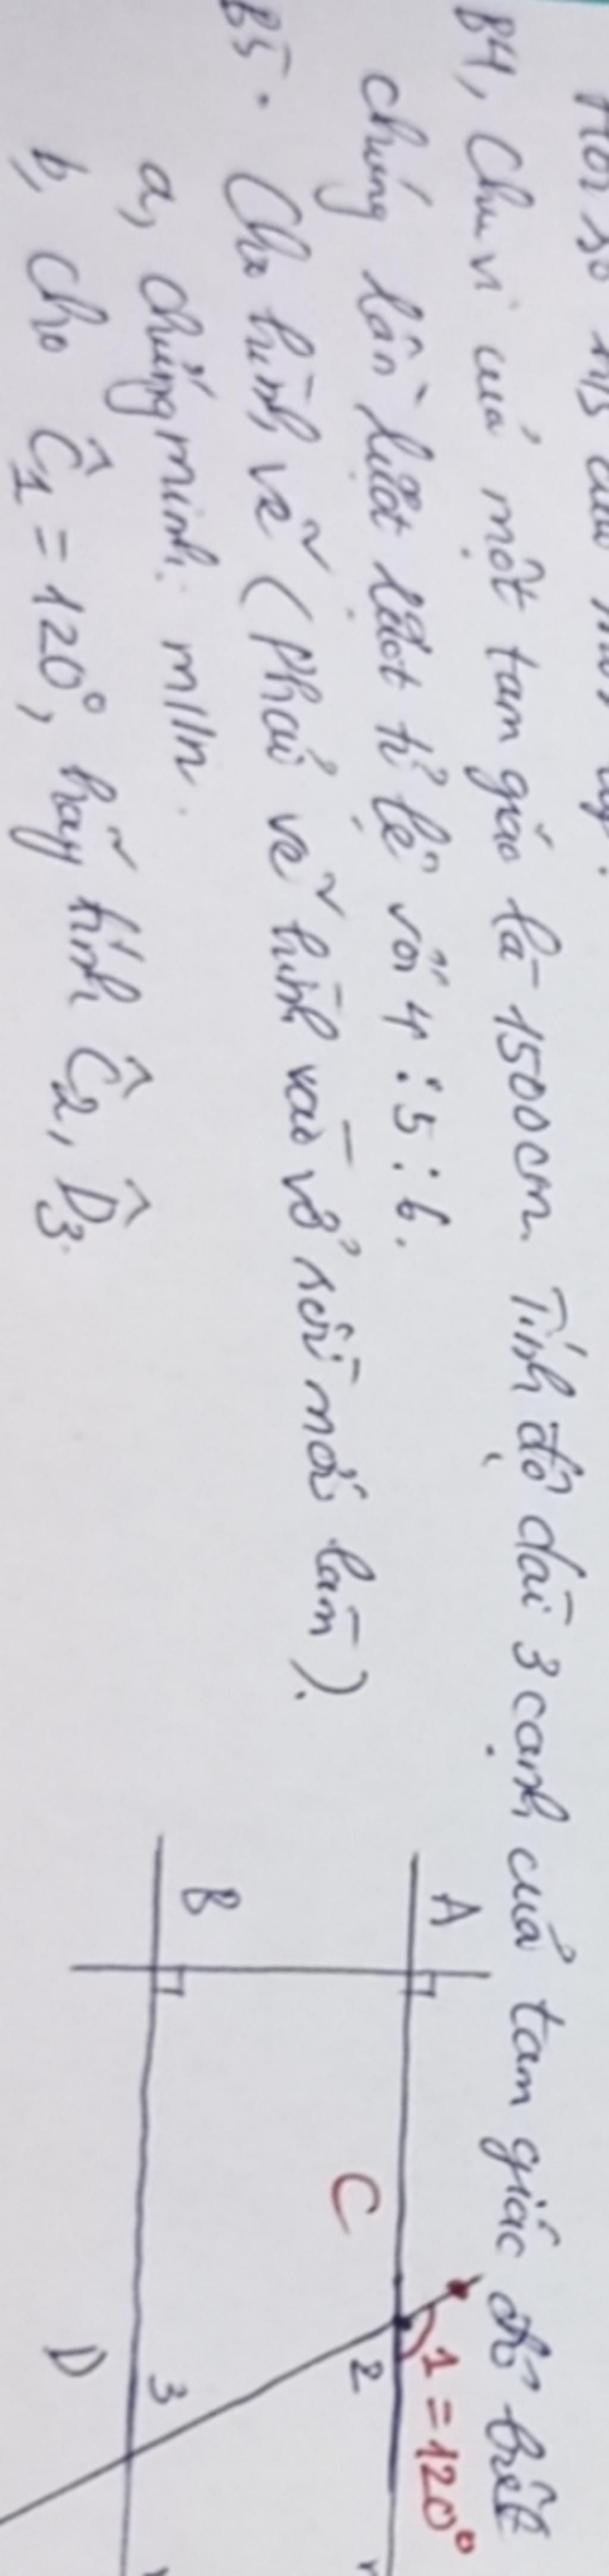 B4, Chu vi của một tam giác là 1500cm. Tính độ dài 3 cạnh của tam giác đó biết
chúng lần lượt lượt tỉ lệ với 4 : 5 : 6.
B5. Cho hình vẽ (Phải vẽ hình vào vở rồi mới làm).
a, chứng minh: m//n.
b, cho Ĉ1 = 120°, hãy tính Ĉ2, D̂3.
A
B
C
1 = 120°
2
3
D